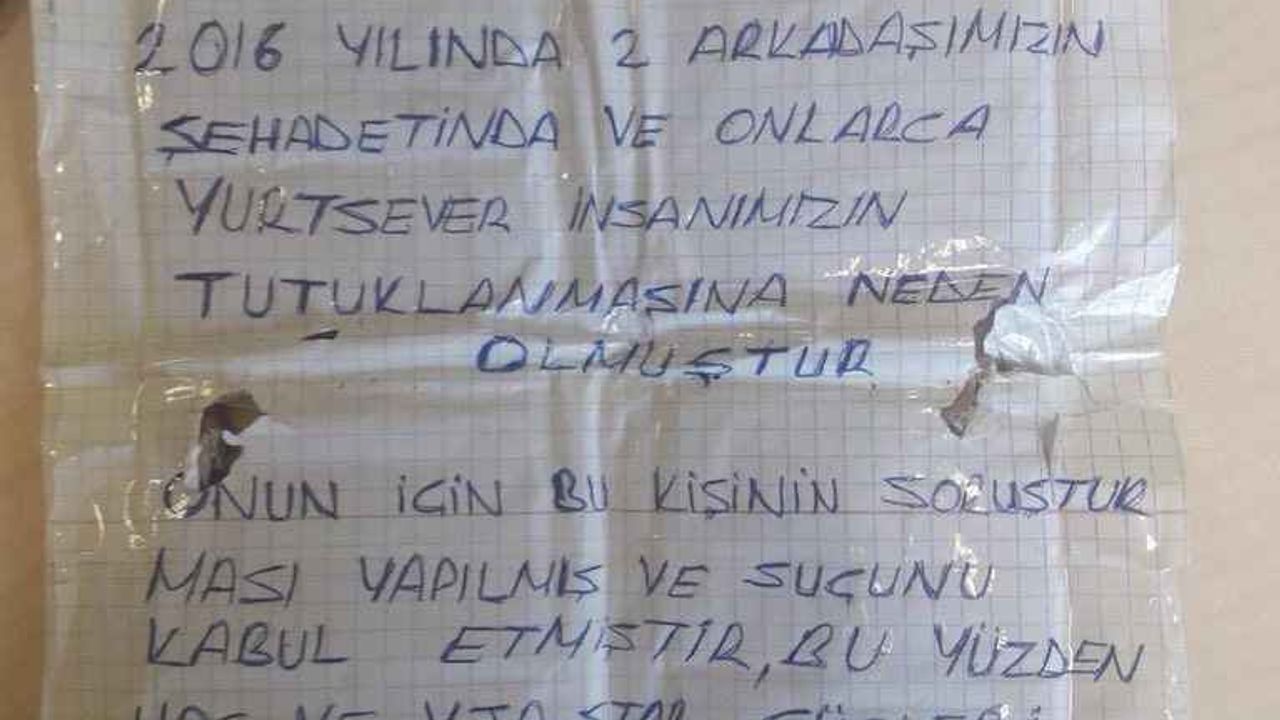 2016 YILINDA 2 ARKADAŞIMIZIN
ŞEHADETİNDA VE ONLARCA
YURTSEVER İNSANIMIZIN
TUTUKLANMASINA NEDEN
OLMUŞTUR
ONUN İÇİN BU KİŞİNİN SORUŞTUR
MASI YAPILMIŞ VE SUÇUNU
KABUL ETMİŞTİR, BU YÜZDEN